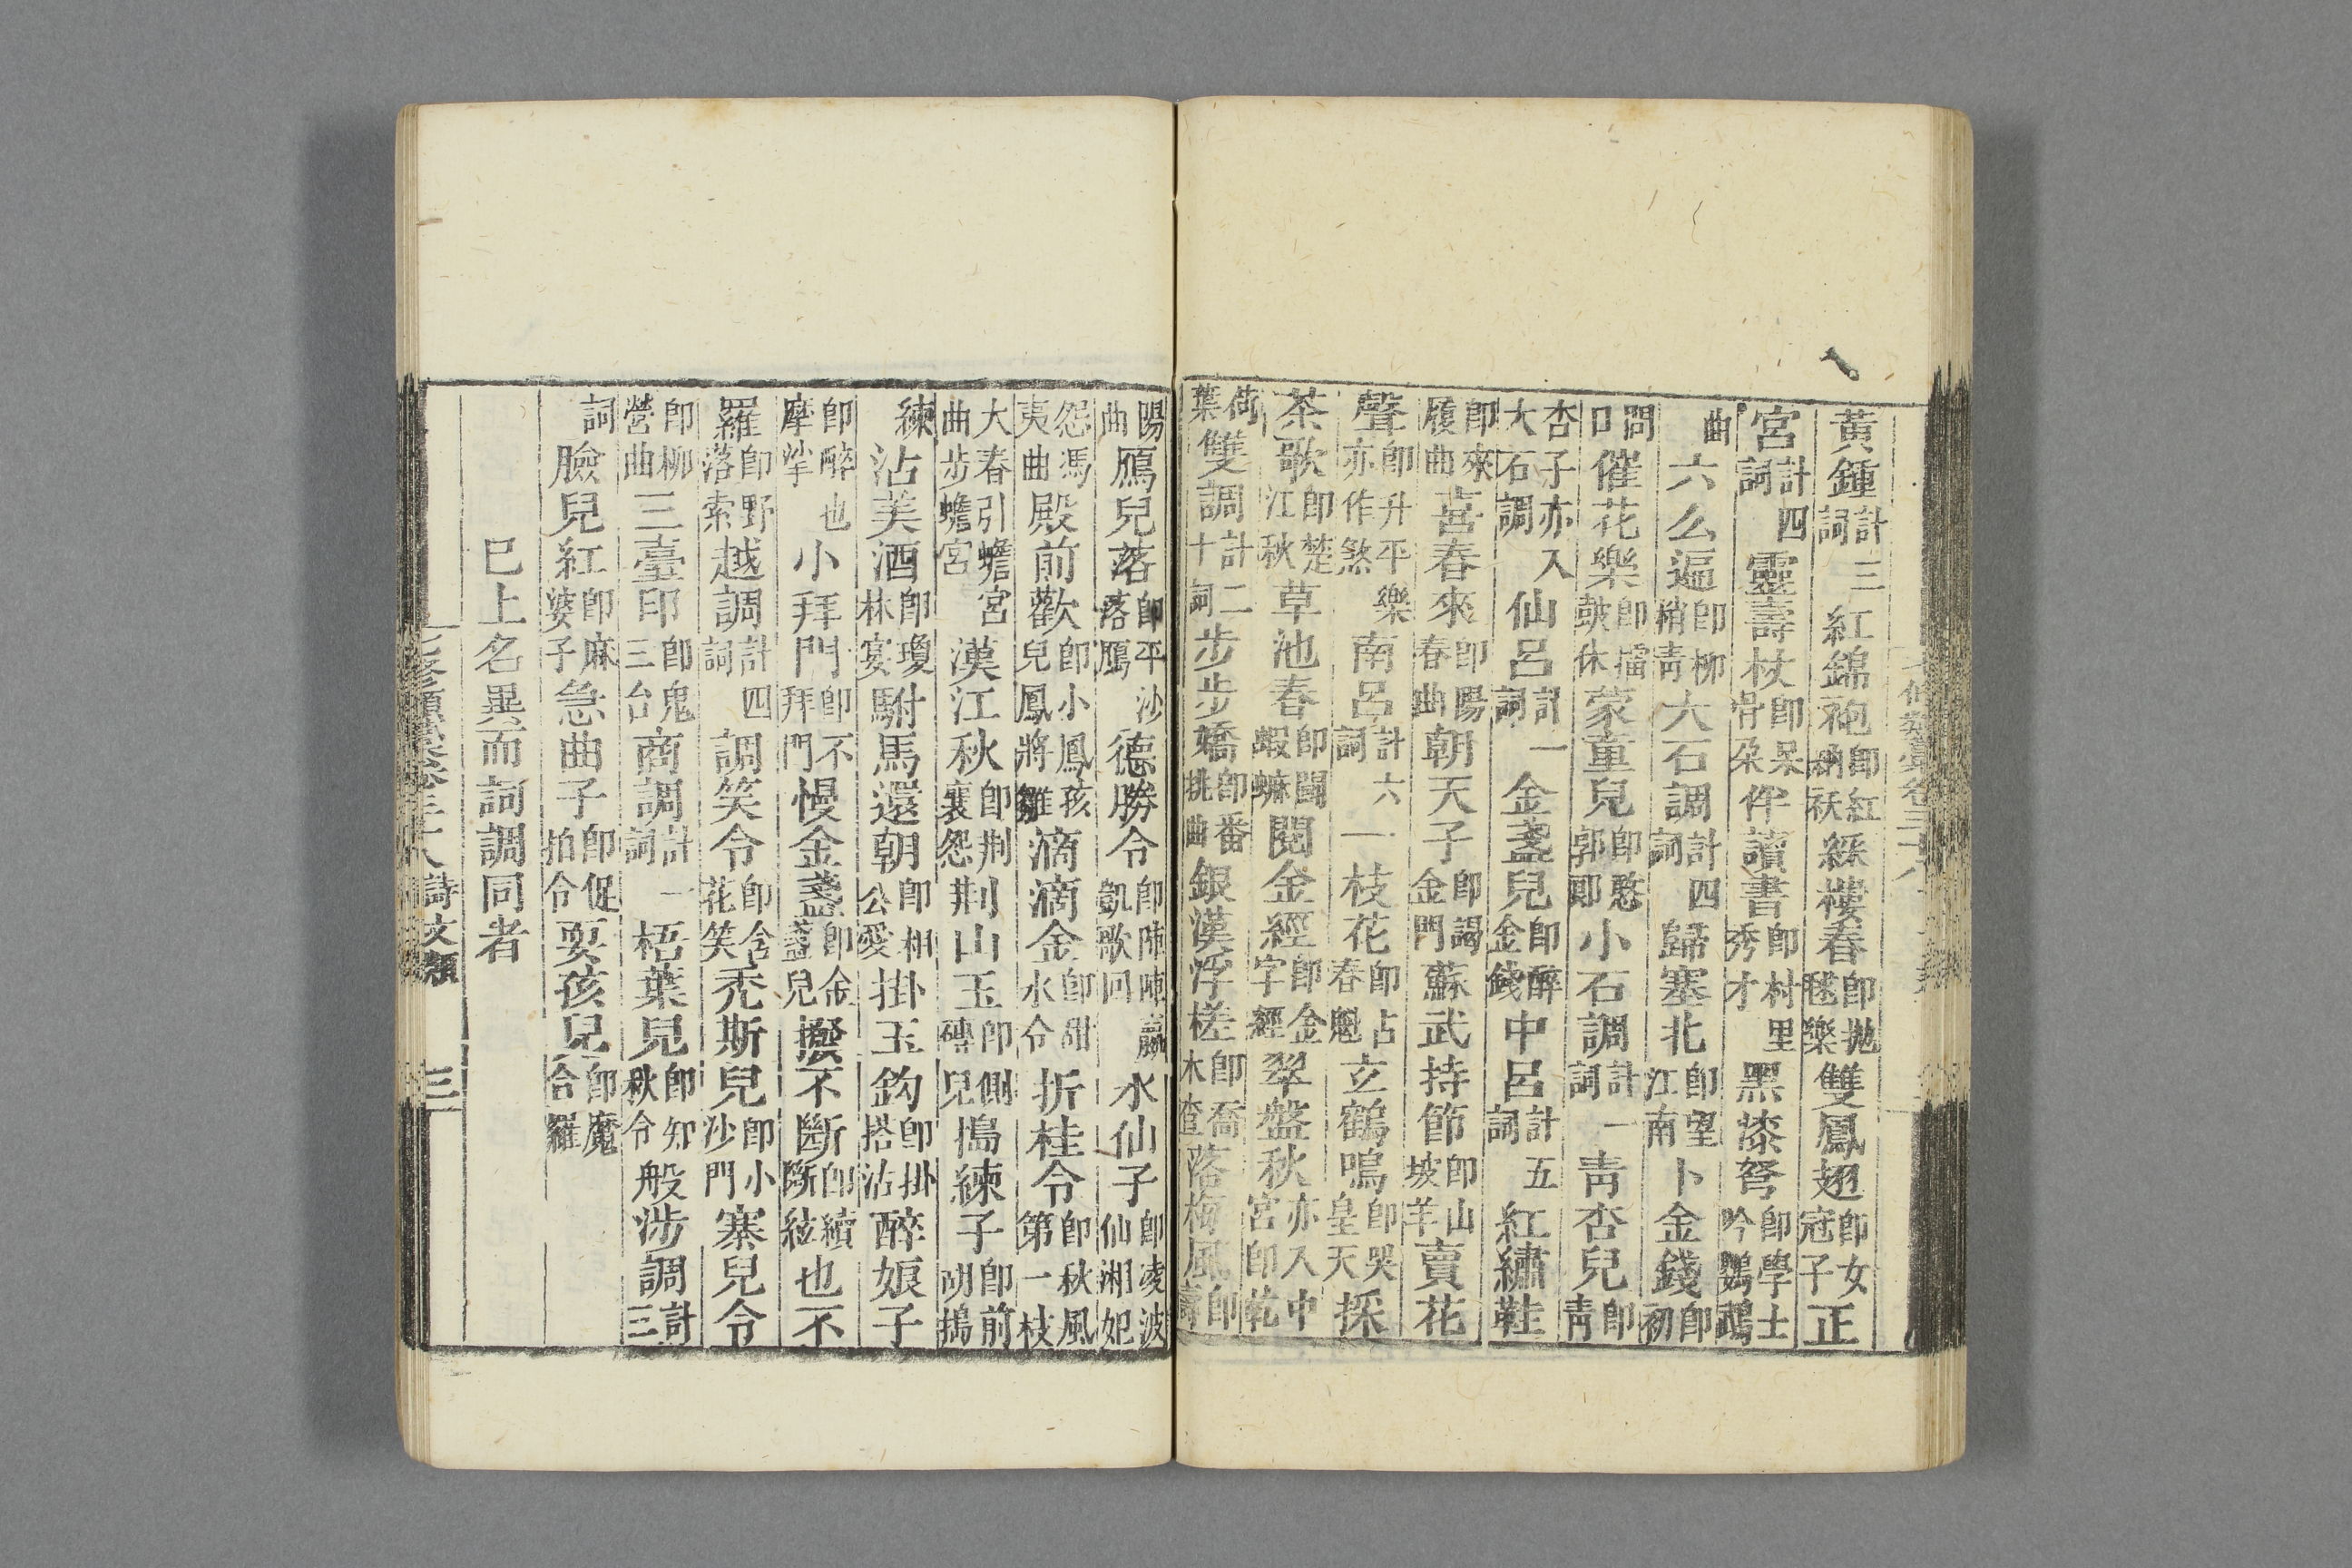 黃鍾計三詞紅錦袍即紅衲襖綵樓春即拋毬樂雙鳳翅即女冠子正
宮計四詞靈壽杖即呆骨朵伴讀書即村里秀才黑漆弩即學士吟鸚鵡
曲六么遍即柳梢青大石調計四詞歸塞北即望江南卜金錢即初
問口催花樂即擂鼓体蒙童兒即憨郭郎小石調計一詞青杏兒即青
杏子亦入大石調仙呂計一詞金盞兒即醉金錢中呂計五詞紅繡鞋
即來履曲喜春來即陽春曲朝天子即謁金門蘇武持節即山坡羊賣花
聲即升平樂亦作煞南呂計六詞一枝花即占春魁玄鶴鳴即哭皇天採
茶歌即楚江秋草池春即鬭蝦蟆閱金經即金字經翠盤秋亦入中宮即乾
荷葉雙調計二十詞步步嬌即番挑曲銀漢浮槎即喬木查落梅風即壽
陽曲鴈兒落即平沙落鴈德勝令即陣陣贏凱歌回水仙子即凌波仙湘妃
怨馮夷曲殿前歡即小鳳孩兒鳳將雛滴滴金即甜水令折桂令即秋風第一枝
大春引蟾宮曲步蟾宮漢江秋即荆襄怨荆山玉即側磚兒搗練子即前胡搗
練沽美酒即瓊林宴駙馬還朝即相公愛掛玉鈎即掛搭沽醉娘子
即醉也摩挲小拜門即不拜門慢金盞即金盞兒撥不斷即續斷絃也不
羅即野落索越調計四詞調笑令即含花笑禿斯兒即小沙門寨兒令
即柳營曲三臺印即鬼三台商調計一詞梧葉兒即知秋令般涉調計三
詞臉兒紅即麻婆子急曲子即促拍令耍孩兒即魔合羅
巳上名異而詞調同者
七修類藁卷三十八 詩文類 三